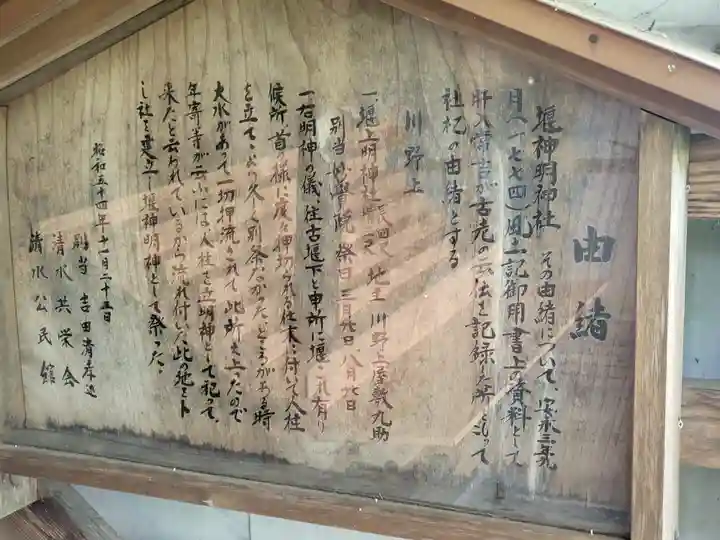 由緒
堰神明神社 その由緒について、安永三年九
月(一七七四)風土記御用書上の資料として
肝入甯吉が古老の云伝を記録した所に
社杞の由緒とする
川野上
一、堰上明神社 地主 川野上屋敷九助
別当 祭日 三月九日 八月九日
一、右明神の儀、往古堰下と申所に堰これ有り
候所、首の様に度々押切られる仕末に付いて人柱
を立て、より久しく別条なかったところがある時
大水があって一切押流されて此所に上ったので
年寄等が云ふには人柱を立明神として祀って
来たと云われているから流れ付いた此の地にト
し社を建立し堰神明神として祭った。
昭和五十四年十一月二十三日
別当 吉田
清水共栄会
清水公民館